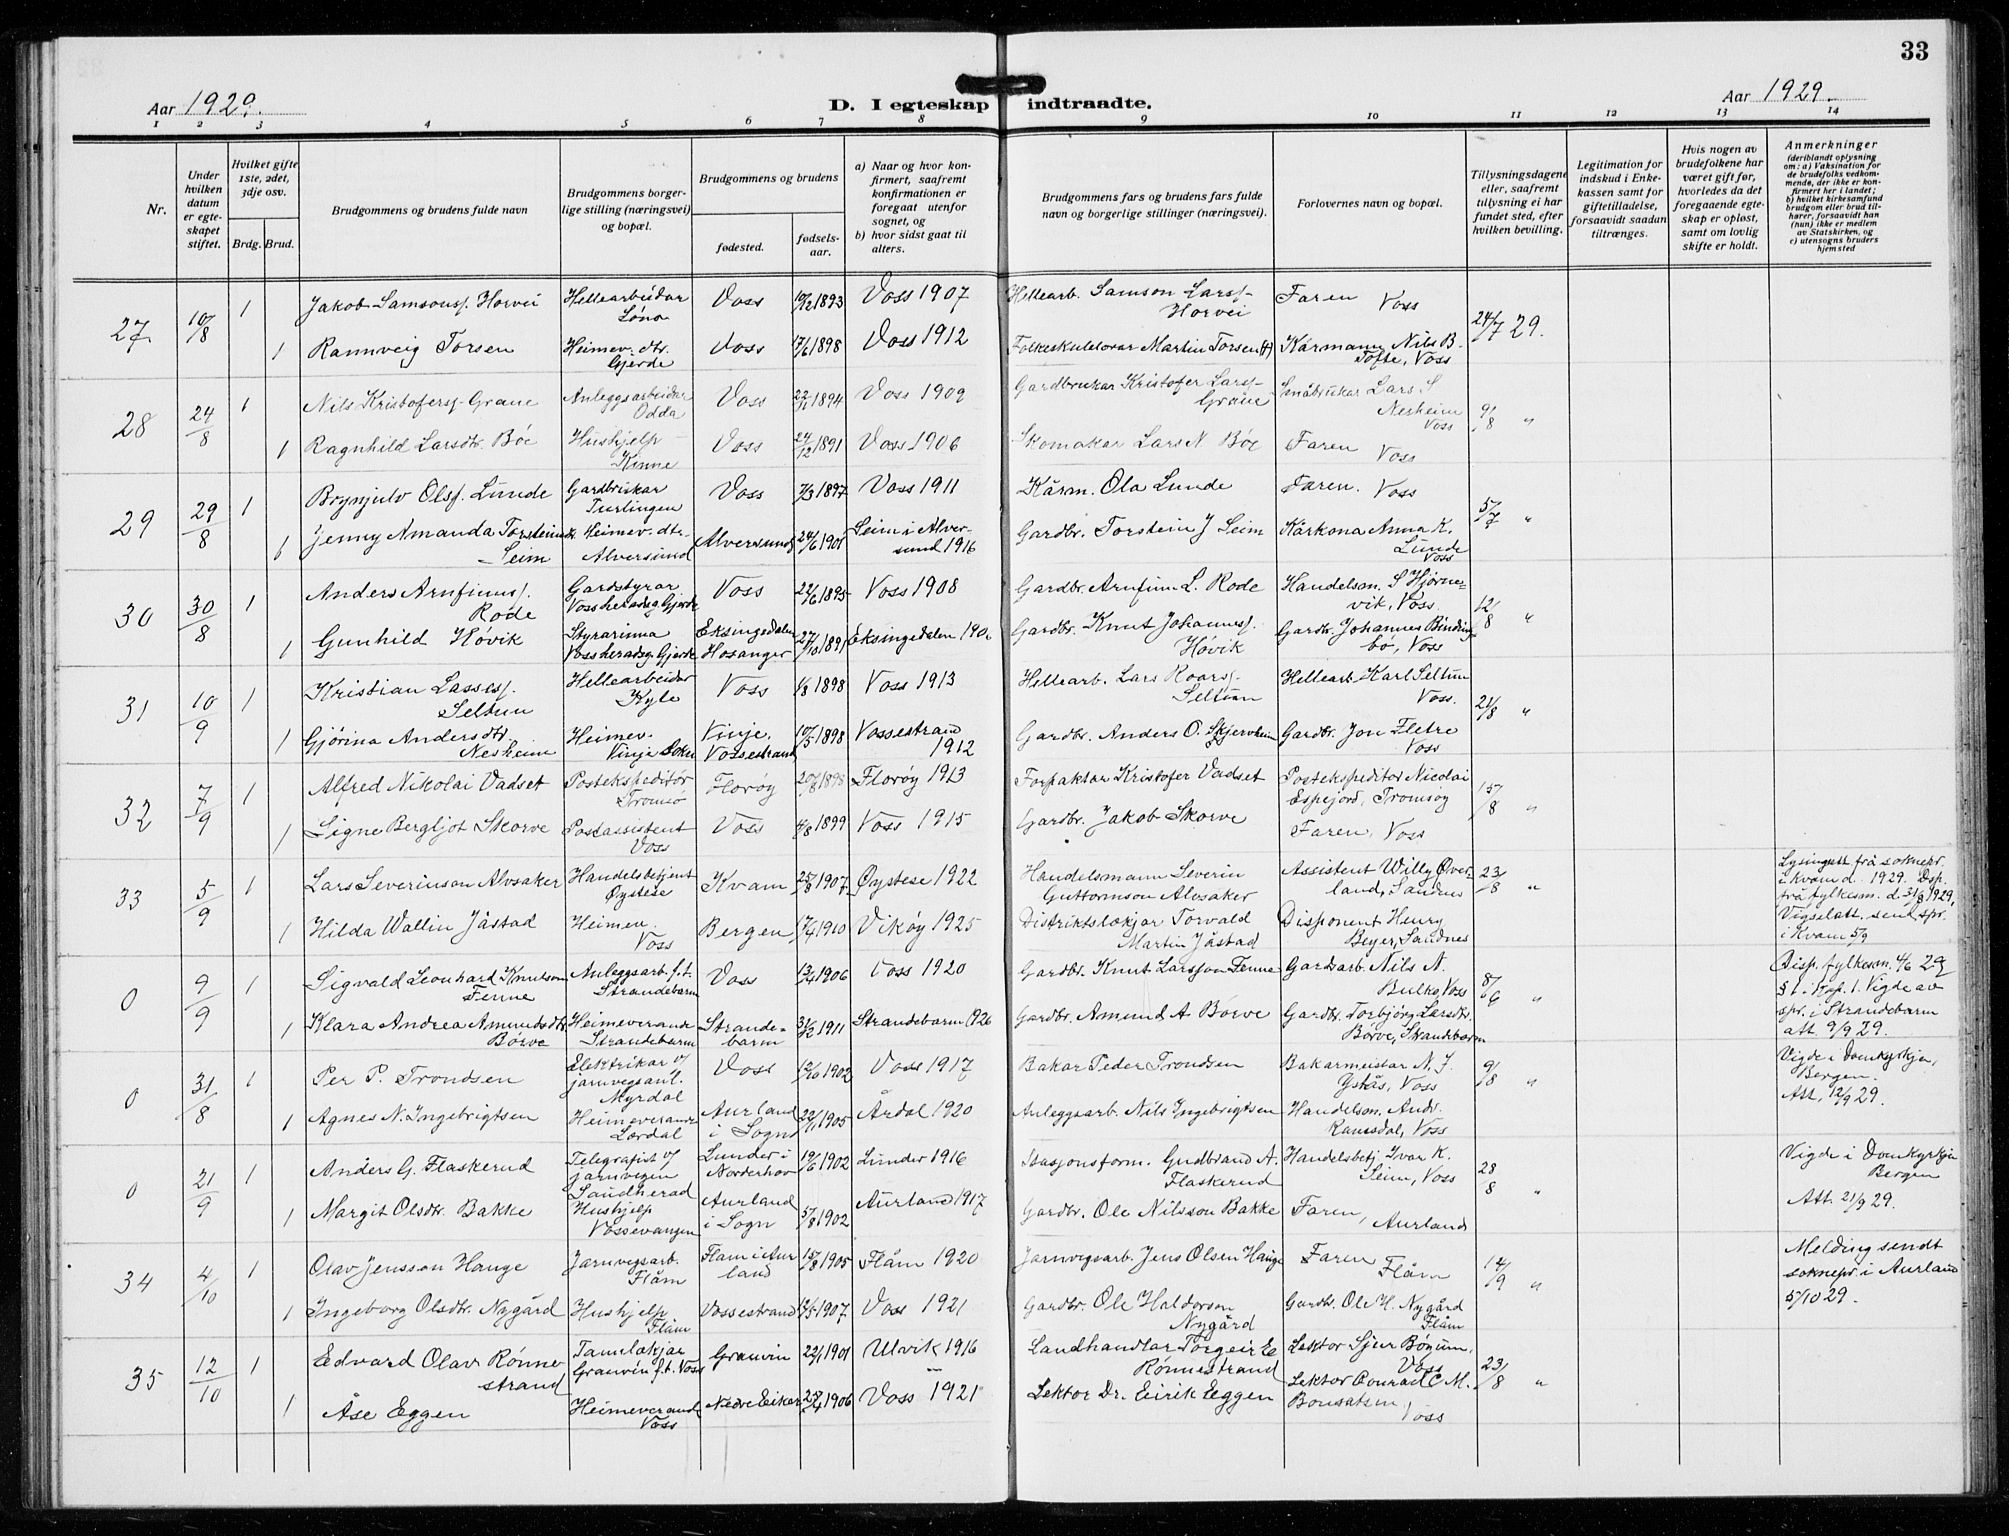 33
Aar 1929.
D. I egteskap indtraadte.
Aar 1929.
1 2 3 4 5 6 7 8 9 10 11 12 13 14
Nr.
Under hvilken datum er egteskapet stiftet.
Hvilket gifte 1ste, 2det, 3dje osv.
Brdg. Brud.
Brudgommens og brudens fulde navn
Brudgommens borgerlige stilling (næringsvei) og bopæl.
Brudgommens og brudens
fødested.
fødselsaar.
a) Naar og hvor konfirmert, saafremt konfirmationen er foregaat utenfor sognet, og
b) hvor sidst gaat til alters.
Brudgommens fars og brudens fars fulde navn og borgerlige stillinger (næringsvei).
Forlovernes navn og bopæl.
Tillysningsdagene eller, saafremt tillysning ei har fundet sted, efter hvilken bevilling.
Legitimation for indskud i Enkekassen samt for giftetilladelse, forsaavidt saadan tiltrænges.
Hvis nogen av brudefolkene har været gift før, hvorledes da det foregaaende egteskap er opløst, samt om lovlig skifte er holdt.
Anmerkninger
(deriblandt oplysning om: a) Vaksination for de brudefolks vedkommende, der ikke er konfirmert her i landet; b) hvilket kirkesamfund brudgom eller brud tilhører, forsaavidt han (hun) ikke er medlem av Statskirken, og c) utensogns bruders hjemsted
27. 10/8 1 Jakob Samsonsf. Horvei Hellearbeidar Løno Voss 10/2 1893 Voss 1907 Hellearb. Samson Larsf. Horvei Faren Voss 24/7 29.
1 Rannveig Torsen Heimev. dtr. Gjerde Voss 7/6 1898 Voss 1912 Folkeskulelærar Martin Torsen (+) Kårmann Nils B. Tofte, Voss
28 24/8 1 Nils Kristofersf. Grane Anleggsarbeidar Odda Voss 22/1 1894 Voss 1909 Gardbrukar Kristofer Larsf. Grane Småbrukar Lars S Nesheim Voss 9/8 "
1 Ragnhild Larsdtr. Bøe Hushjelp Kinne Voss 24/12 1891 Voss 1906 Skomakar Lars N Bøe Faren Voss
29 29/8 1 Brynjulv Olsf. Lunde Gardbrukar Turlingen Voss 7/3 1897 Voss 1911 Kårm. Ola Lunde Faren. Voss 5/7 "
1 Jenny Amanda Torsteinsdtr. Seim Heimev. dtr. Alversund Alversund 24/6 1901 Seim i Alversund 1916 Gardbr. Torstein J Seim Kårkona Anna K. Lunde Voss
30 30/8 1 Anders Arnfinnsf. Rode Gardstyrar Voss heradsg. Gjerde Voss 22/6 1895 Voss 1908 Gardbr. Arnfinn L. Rode Handelsm. S Hjørnevik, Voss 12/8 "
1 Gunhild Høvik Styrarinna Voss heradsg. Gjerde Eksingedalen Hosanger 27/10 1891 Eksingedalen 190 Gardbr. Knut Johannesf. Høvik Gardbr. Johannes Bindingbø, Voss
31 10/9 1 Kristian Lassesf. Seltun Hellearbeidar Kyte Voss 1/8 1898 Voss 1913 Hellearb. Lars Roarsf. Seltun Hellearb. Karl Seltun Voss. 21/8 "
1 Gjørina Andersdtr. Nesheim Heimev. Vinje Sokn Vinje, Vossestrand 10/5 1898 Vossestrand 1912 Gardbr. Anders O. Skjervheim Gardbr. Jon Fletre Voss
32 7/9 1 Alfred Nikolai Vadset Postekspeditør Tromsø Florøy 20/8 1898 Florøy 1913 Forpaktar Kristofer Vadset Postekspeditor Nicolai Espejord, Tromsøy 15/8 "
1 Signe Bergljot Skorve Postassistent Voss Voss 4/8 1899 Voss 1915 Gardbr. Jakob Skorve Faren, Voss
33 5/9 1 Lars Severinson Alvsaker Handelsbetjent Øystese Kvam 25/8 1907 Øystese 1922 Handelsmann Severin Guttormson Alvsaker Assistent Willy Øverland, Sandnes 23/8 " Lysingsatt. frå soknepr. i Kvam d. 1929. Disp. frå fylkesm. d. 31/8 1929, Vigselatt. send spr. i Kvam 5/9
1 Hilda Wallin Jåstad Heimev. Voss Bergen 17/4 1910 Vikøy 1925 Distriktslækjar Torvald Martin Jåstad Disponent Henry Beyer, Sandnes
0 9/9 1 Sigvald Leonhard Knutson Fenne Anleggsarb. f.t. Strandebarm Voss 13/4 1906 Voss 1920 Gardbr. Knut Larsson Fenne Gardsarb. Nils N. Bulko, Voss 8/6 " Disp. fylkesm. 4/6 29 § 1 i Kap. 1. Vigde av spr. i Strandebarm att. 9/9 29.
1 Klara Andrea Amundsdtr. Børve Heimeverande Strandebarm Strandebarm 31/12 1911 Strandebarm 1926 Gardbr. Amund A Børve Gardbr. Torbjørg Larsdtr. Børve, Strandebarm
0 31/8 1 Per P. Trondsen Elektrikar v/ jarnvegsanl. Myrdal Voss 12/6 1902 Voss 1917 Bakar Peder Trondsen Bakarmeistar N. J. Gjstås, Voss 9/8 " Vigde i Domkyrkja, Bergen. Att. 12/9 29.
1 Agnes N. Ingebrigtsen Heimeverande Lærdal Aurland i Sogn 22/1 1905 Årdal 1920 Anleggsarb. Nils Ingebrigtsen Handelsm. Andr. Ramsdal, Voss
0 21/9 1 Anders G. Flaskerud Telegrafist v/ jarnvegen Saudherad Lunder i Norderhov 19/6 1902 Lunder 1916 Stasjonsform. Gudbrand A. Flaskerud Handelsbetj. Ivar K. Seim, Voss 28/8 " Vigde i Domkyrkja Bergen Att. 21/9 29.
1 Margit Olsdtr. Bakke Hushjelp Vossevangen Aurland i Sogn 5/8 1902 Aurland 1917 Gardbr. Ole Nilsson Bakke Faren, Aurland
34 4/10 1 Olav Jensson Hauge Jarnvegsarb. Flåm Flam i Aurland 15/8 1905 Flåm 1920 Jarnvegsarb. Jens Olsen Hauge Faren Flåm 14/9 " Melding sendt soknepr. i Aurland 5/10 29.
1 Ingeborg Olsdtr. Nygård Hushjelp Flåm Vossestrand 12/5 1907 Voss 1921 Gardbr. Ole Haldorson Nygård Gardbr. Ole H. Nygård Flåm
35 12/10 1 Edvard Olav Rønnestrand Tannlækjar Granvin f.t. Voss Granvin 22/1 1901 Ulvik 1916 Landhandlar Torgeir E Rønnestrand Lektor Sjur Bøyum, Voss 23/8 "
1 Åse Eggen Heimeverand Voss Nedre Eiker 25/4 1906 Voss 1921 Lektor Dr. Eirik Eggen Lektor Conrad C M. Bonsatsen Voss